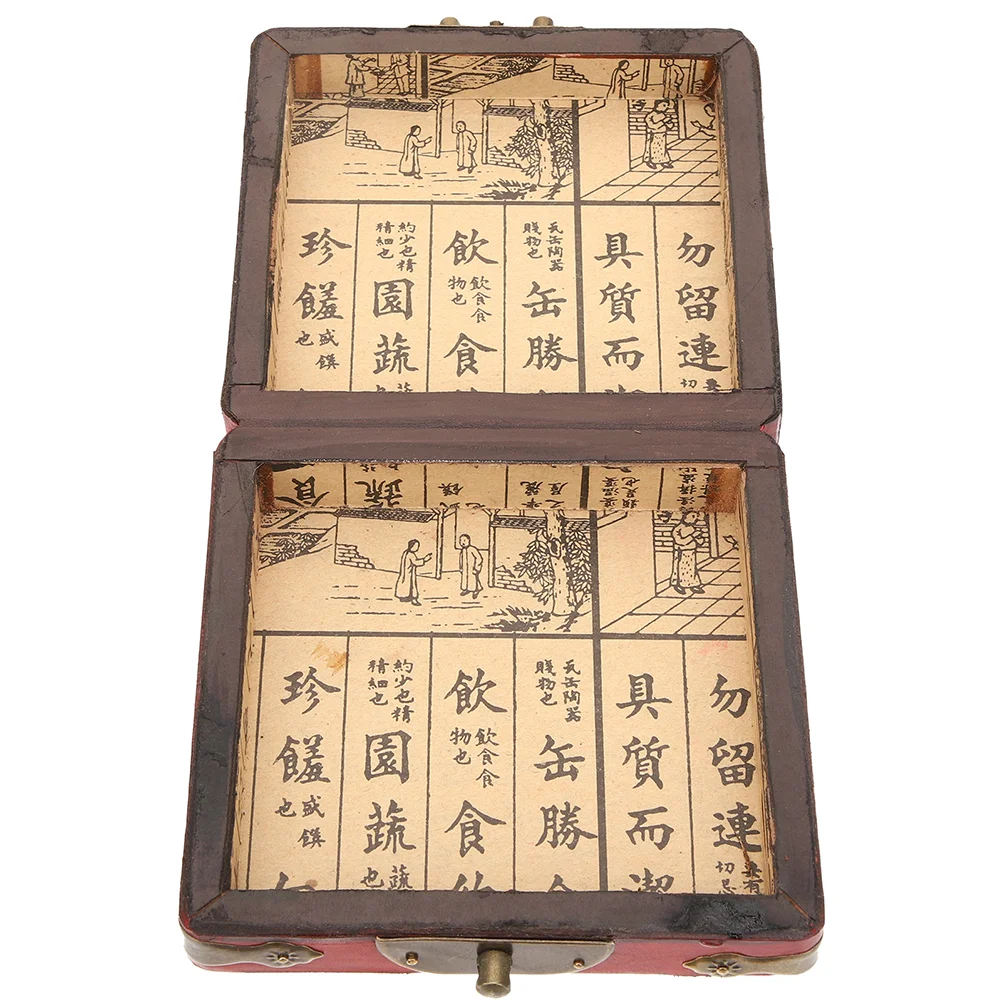 勿留連
具質而
瓦缶陶器
賤物也
缶勝
飲
飲食食
物也
食
約少也精
精細也
園蔬
珍饈
盛饌
也
食
蔬
勿留連
切忌
具質而潔
瓦缶陶器
賤物也
缶勝
飲
飲食食
物也
食
約少也精
精細也
園蔬
蔬
也
珍饈
盛饌
也